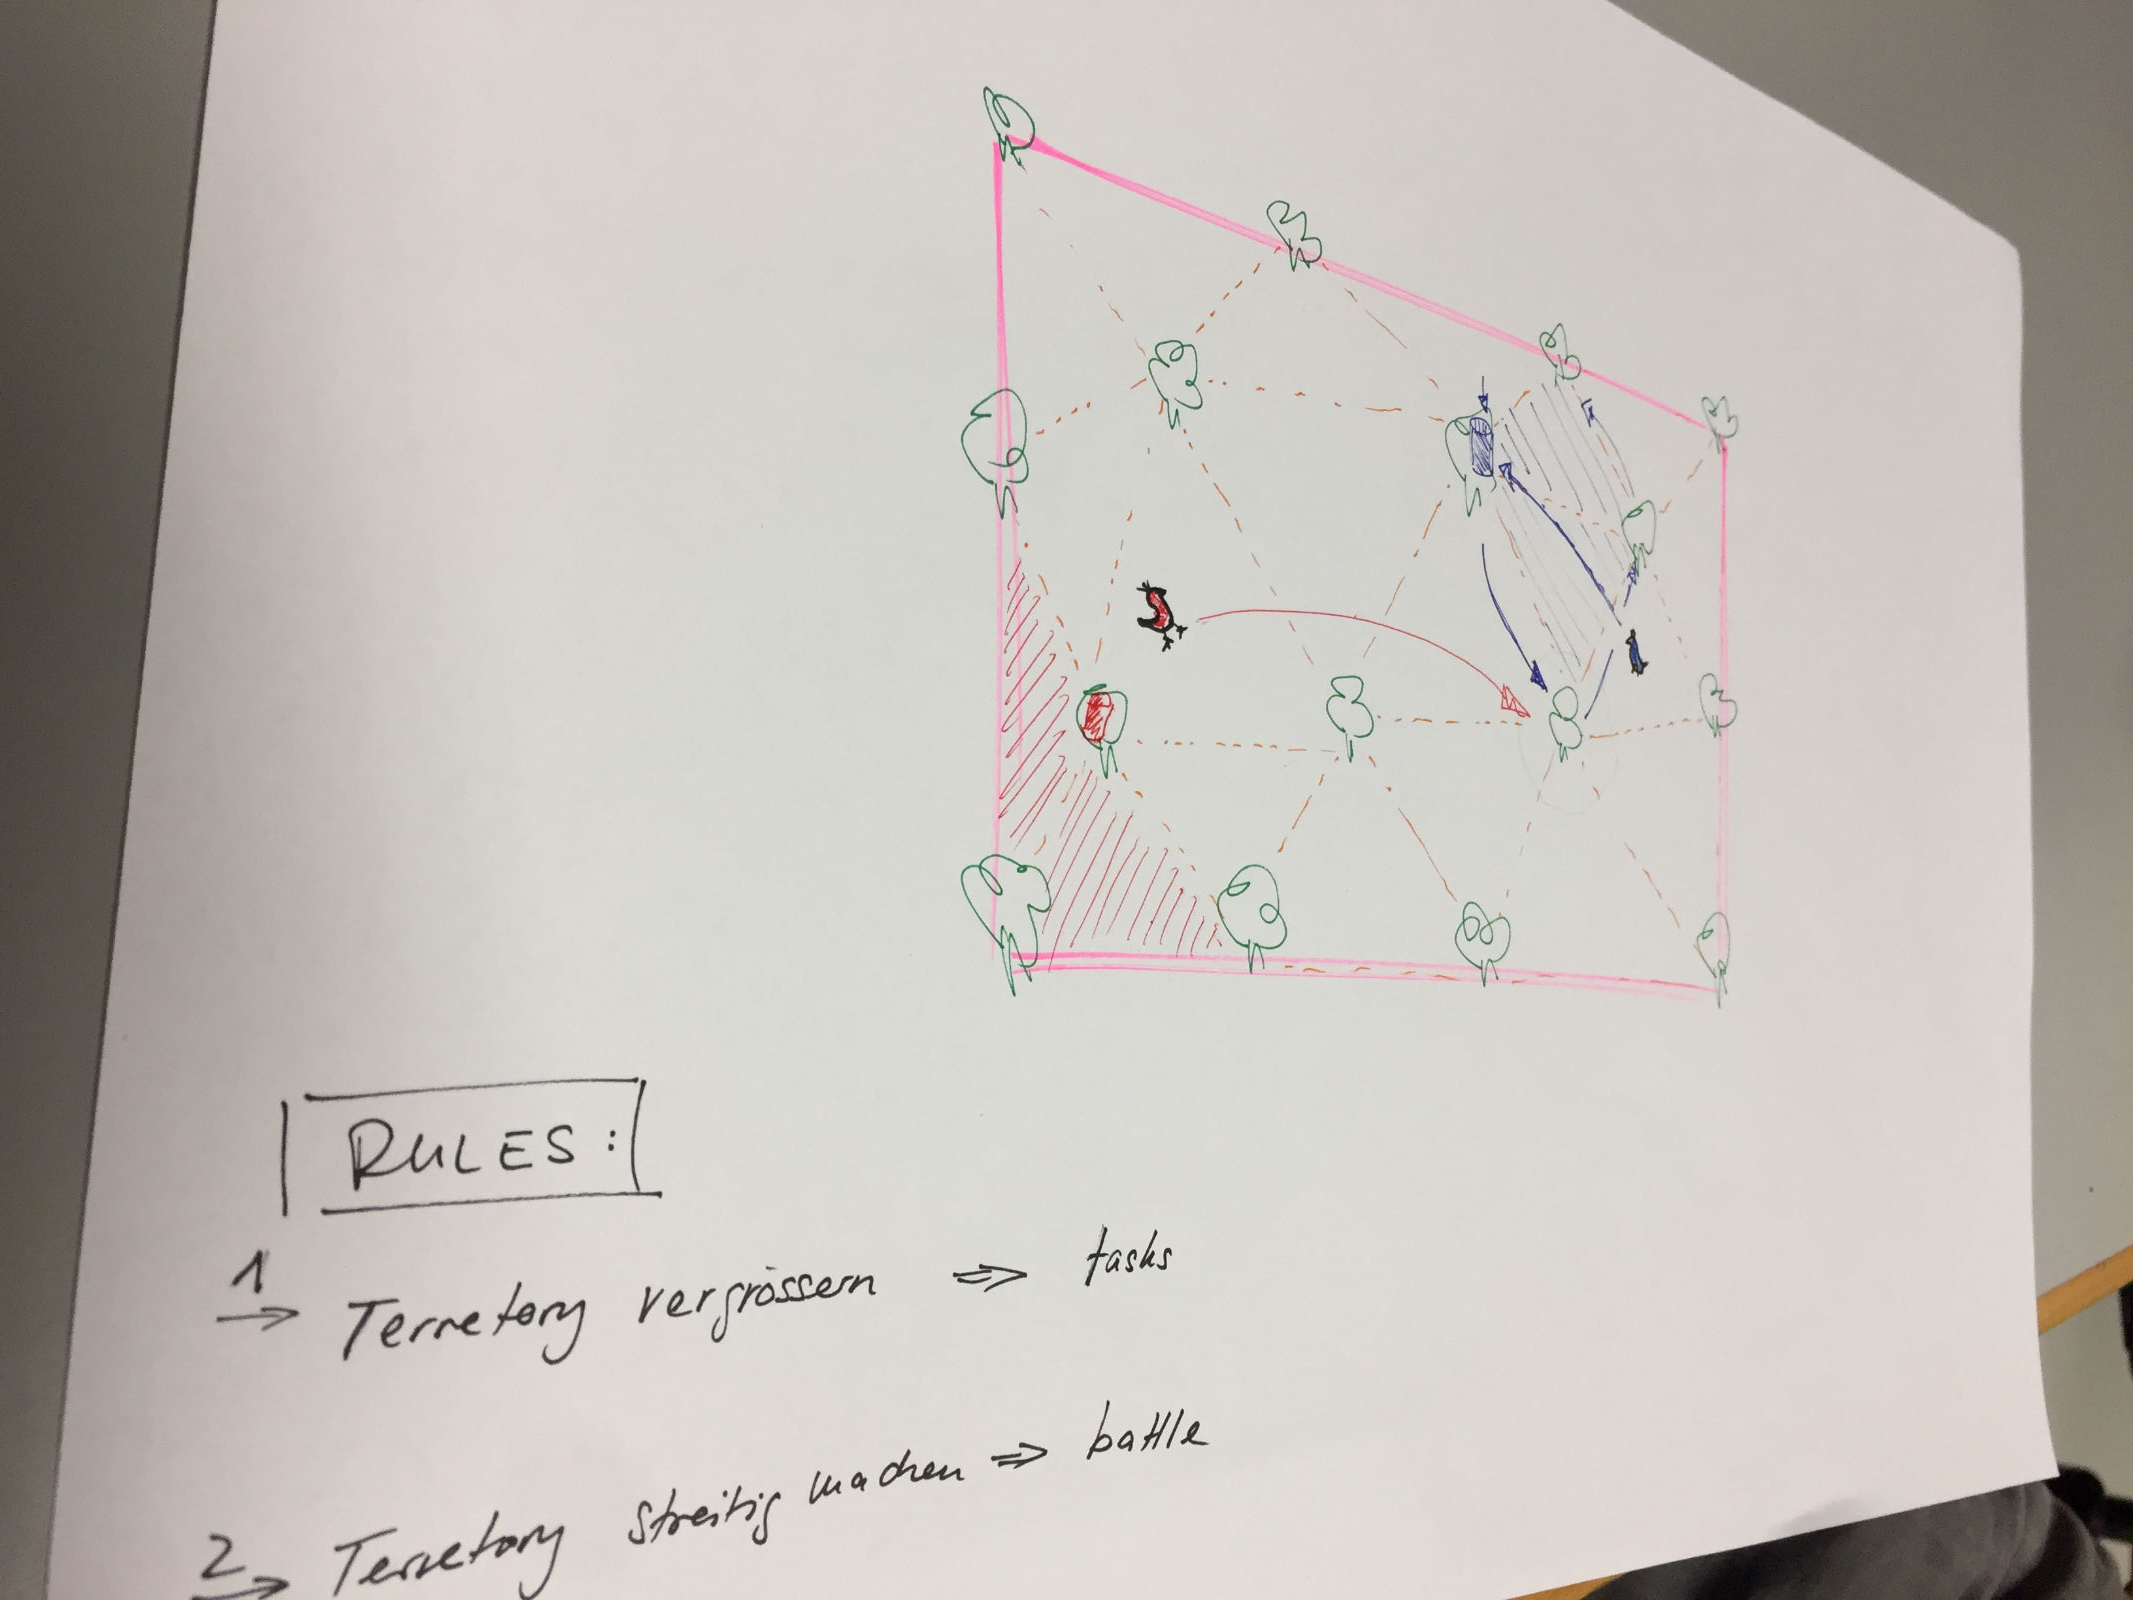 RULES:
1 → Terretory vergrössern ⇒ tasks
2 → Terretory streitig machen ⇒ battle